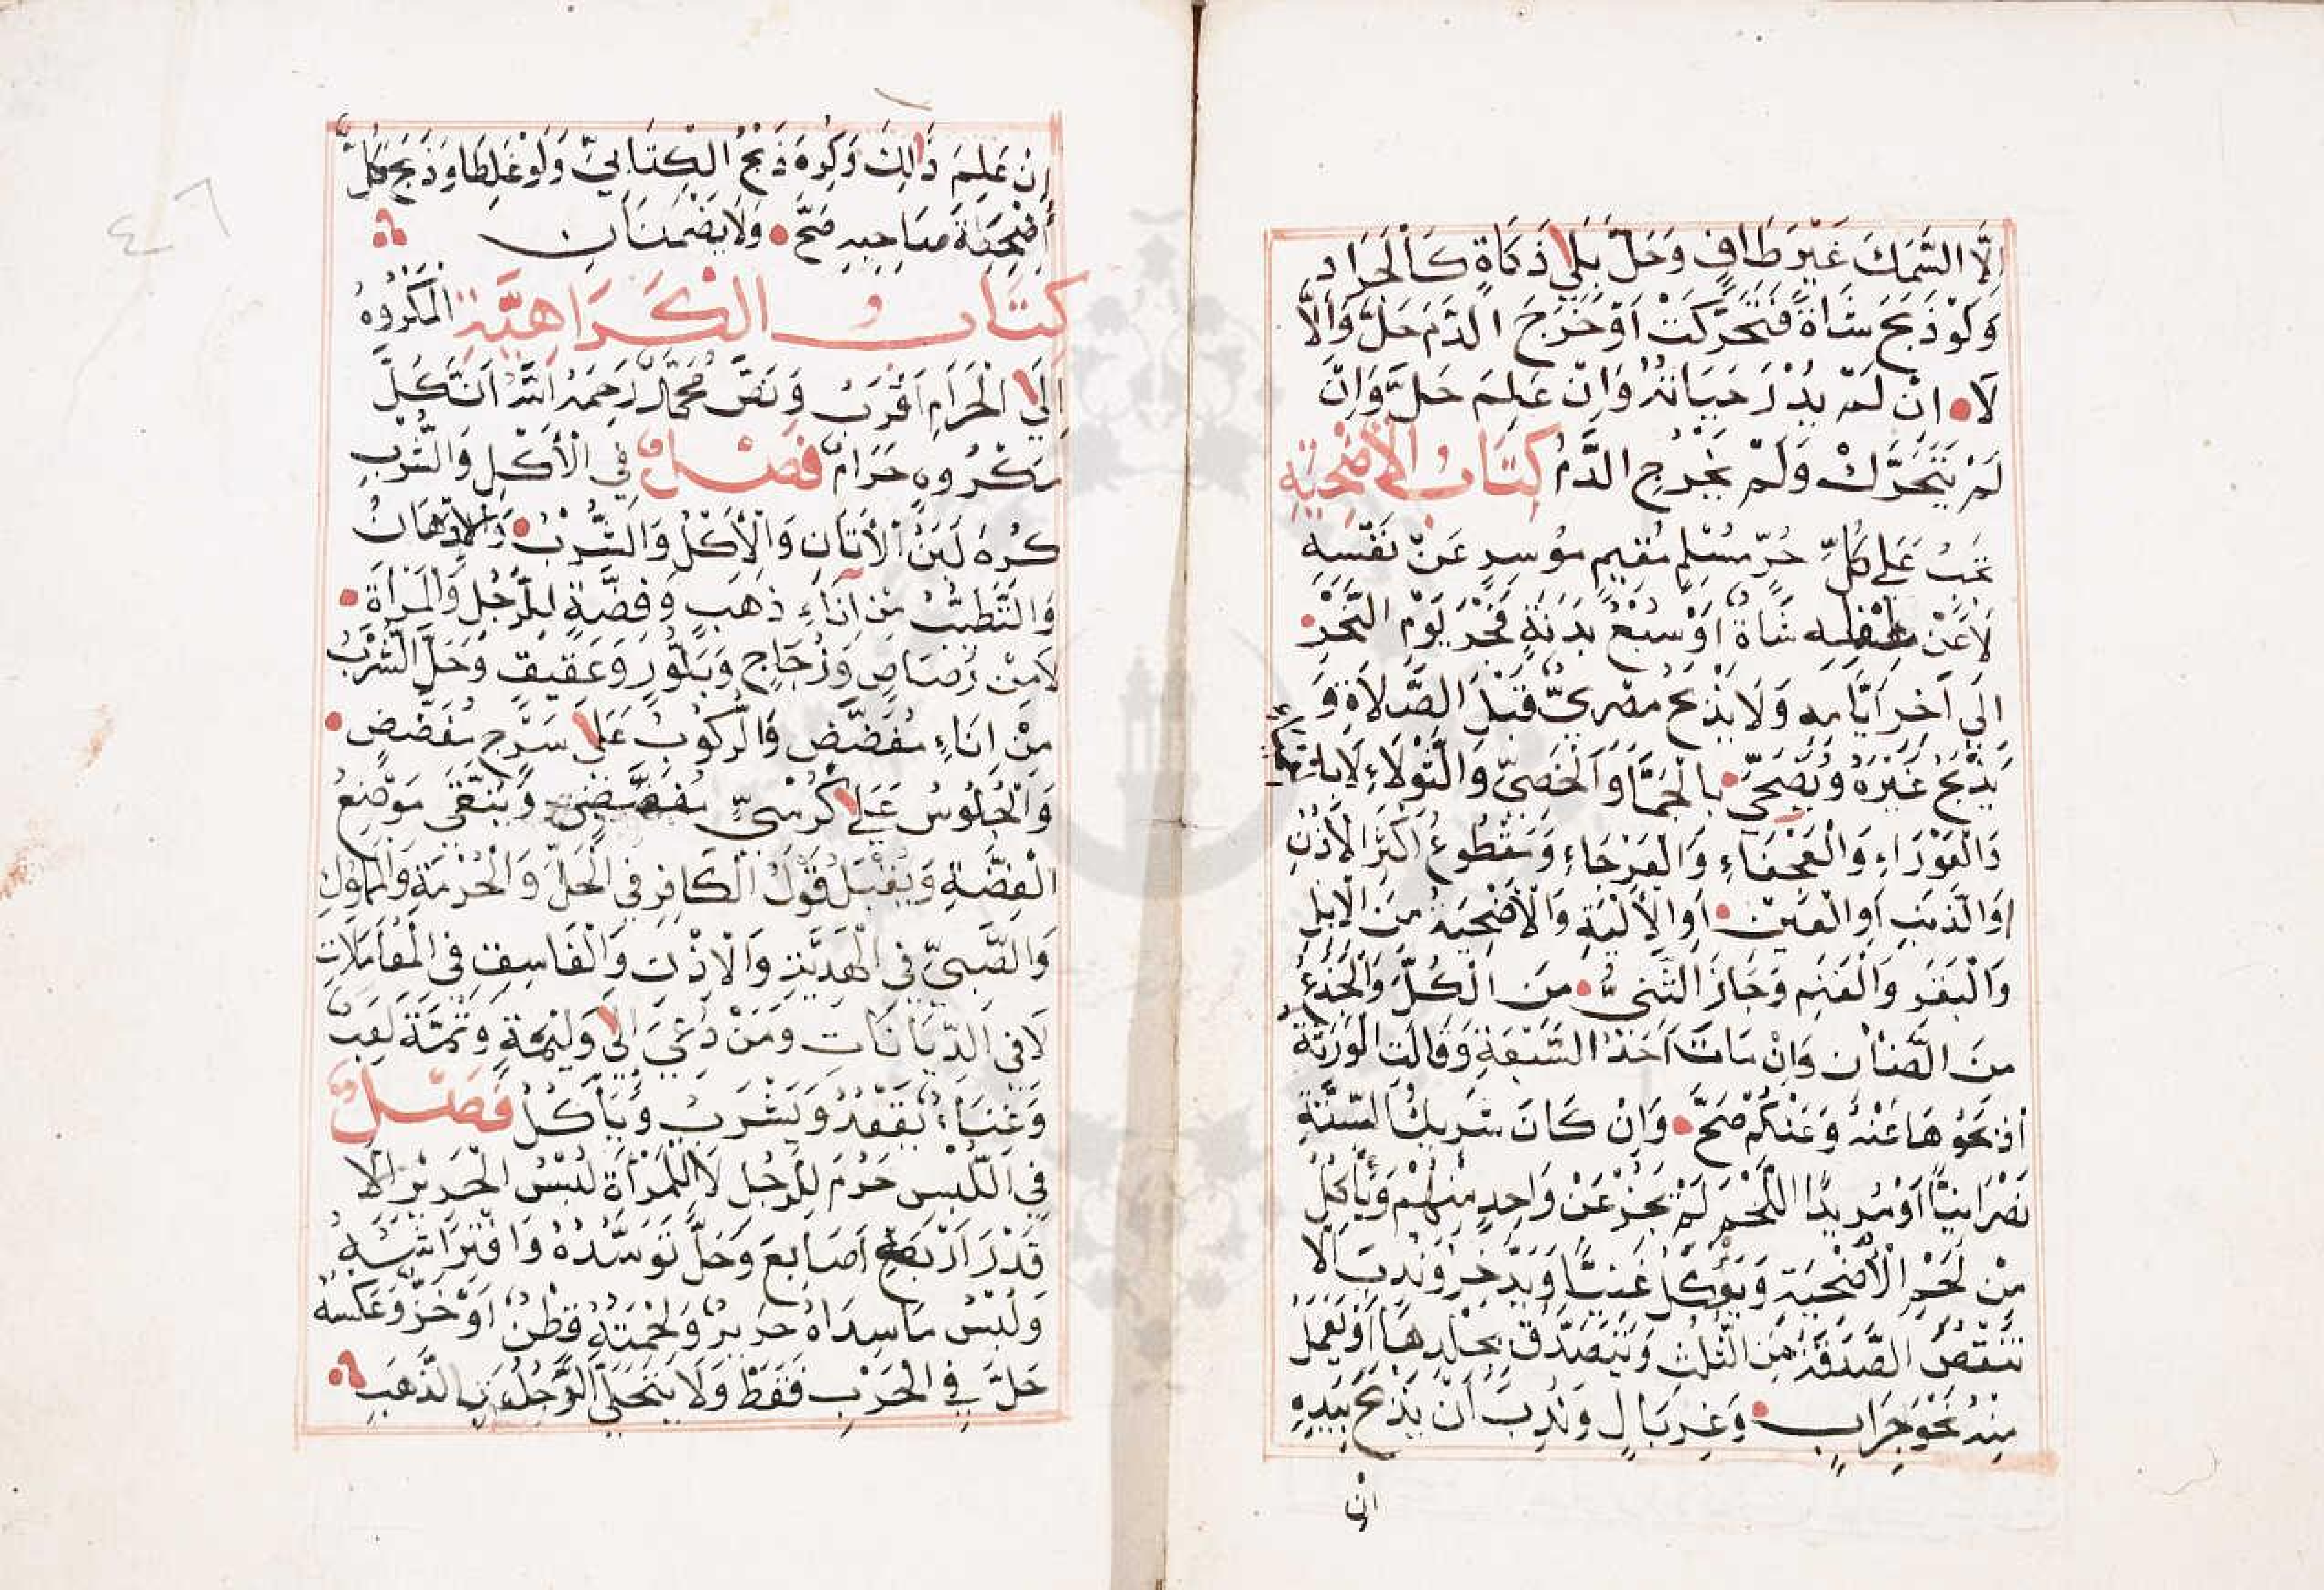 اِلَّا السَّمَكَ غَيْرَ طَافٍ وَحَلَّ بَلَي ذَكَاةٍ كَالْجَرَادِ
وَلَوْ ذَبَحَ شَاةً فَتَحَرَّكَتْ اَوْ خَرَجَ الدَّمَ حَلَّ وَاَلَّا
لَا اِنْ لَمْ يُدْرَ حَيَاتُهُ وَاِنْ عَلِمَ حَلَّ وَاِنْ
لَمْ يَتَحَرَّكْ وَلَمْ يَخْرُجِ الدَّمُ كِتَابُ الْاُضْحِيَةِ
تَجِبُ عَلَي كُلِّ حُرٍّ مُسْلِمٍ مُقِيمٍ مُوسِرٍ عَنْ نَفْسِهِ
لَا عَنْ طِفْلِهِ شَاةٌ اَوْ سُبْعُ بَدَنَةٍ فَجْرَ يَوْمِ النَّحْرِ
اِلَي اَخِرِ اَيَّامِهِ وَلَا يَذْبَحُ مِصْرِيٌّ قَبْلَ الصَّلَاةِ وَ
يَذْبَحُ غَيْرُهُ وَيُضَحِّي بِالْجَمَّا وَالْخَصِيِّ وَالثَّوْلَاءِ لَا بِالْعَمْيَاءِ
وَالْعَوْرَاءِ وَالْعَجْفَاءِ وَالْعَرْجَاءِ وَمَقْطُوعِ اَكْثَرِ الْاُذُنِ
اَوِ الذَّنَبِ اَوِ الْعَيْنِ اَوِ الْاَلْيَةِ وَالْاُضْحِيَةُ مِنَ الْاِبِلِ
وَالْبَقَرِ وَالْغَنَمِ وَجَازَ الثَّنِيُّ مِنَ الْكُلِّ وَالْجَذَعُ
مِنَ الضَّأْنِ وَاِنْ مَاتَ اَحَدُ السَّبْعَةِ وَقَالَتِ الْوَرَثَةُ
اذْبَحُوهَا عَنْهُ وَعَنْكُمْ صَحَّ وَاِنْ كَانَ شَرِيكُ السِّتَّةِ
نَصْرَانِيًّا اَوْ مُرِيدًا اللَّحْمَ لَمْ يَجُزْ عَنْ وَاحِدٍ مِنْهُمْ وَيَأْكُلُ
مِنْ لَحْمِ الْاُضْحِيَةِ وَيُؤْكِلُ غَنِيًّا وَيَدَّخِرُ وَنُدِبَ اَلَّا
تَنْقُصَ الصَّدَقَةُ مِنَ الثُّلُثِ وَيَتَصَدَّقُ بِجِلْدِهَا اَوْ يَعْمَلُ
مِنْهُ نَحْوَ جِرَابٍ وَغِرْبَالٍ وَنُدِبَ اَنْ يَذْبَحَ بِيَدِهِ
اِنْ
اِنْ عَلِمَ ذَالِكَ وَكُرِهَ ذَبْحُ الْكِتَابِيِّ وَلَوْ غَلِطَا وَذَبَحَ كُلٌّ
اُضْحِيَةَ صَاحِبِهِ صَحَّ وَلَا يَضْمَنَانِ
كِتَابُ الْكَرَاهِيَّةِ الْمَكْرُوهُ
اِلَي الْحَرَامِ اَقْرَبُ وَنَصَّ مُحَمَّدٌ رَحِمَهُ اللّٰهُ اَنَّ كُلَّ
مَكْرُوهٍ حَرَامٌ فَصْلٌ فِي الْاَكْلِ وَالشُّرْبِ
كُرِهَ لَبَنُ الْاَتَانِ وَالْاَكْلُ وَالشُّرْبُ وَالْاِدِّهَانُ
وَالتَّطَيُّبُ مِنْ اَنَاءِ ذَهَبٍ وَفِضَّةٍ لِلرَّجُلِ وَالْمَرْأَةِ
لَا مِنْ رَصَاصٍ وَزُجَاجٍ وَبَلُّورٍ وَعَقِيقٍ وَحَلَّ الشُّرْبُ
مِنْ اِنَاءٍ مُفَضَّضٍ وَالرُّكُوبُ عَلَي سَرْجٍ مُفَضَّضٍ
وَالْجُلُوسُ عَلَي كُرْسِيٍّ مُفَضَّضٍ وَيَتَّقِي مَوْضِعَ
الْفِضَّةِ وَيُقْبَلُ قَوْلُ الْكَافِرِ فِي الْحَلِّ وَالْحُرْمَةِ وَالْمَمْلُوكِ
وَالصَّبِيِّ فِي الْهَدِيَّةِ وَالْاِذْنِ وَالْفَاسِقِ فِي الْمُعَامَلَاتِ
لَا فِي الدِّيَانَاتِ وَمَنْ دُعِيَ اِلَي وَلِيمَةٍ وَثَمَّةَ لَعِبٌ
وَغِنَاءٌ يَقْعُدُ وَيَشْرَبُ وَيَأْكُلُ فَصْلٌ
فِي اللُّبْسِ حَرُمَ لِلرَّجُلِ لَا لِلْمَرْأَةِ لُبْسُ الْحَرِيرِ اِلَّا
قَدْرَ اَرْبَعِ اَصَابِعَ وَحَلَّ تَوَسُّدُهُ وَافْتِرَاشُهُ
وَلُبْسُ مَا سِدَاهُ حَرِيرٌ وَلُحْمَتُهُ قُطْنٌ اَوْ خَزٌّ وَعَكْسُهُ
حَلَّ فِي الْحَرْبِ فَقَطْ وَلَا يَتَحَلَّي الرَّجُلُ بِالذَّهَبِ